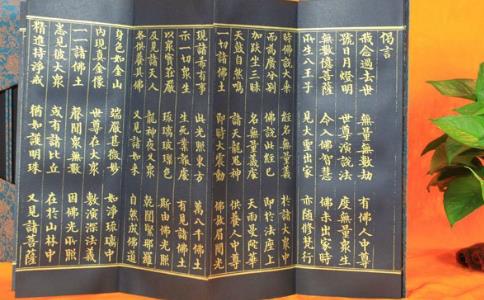 偈言
我念過去世 無量無數劫 有佛人中尊
號日月燈明 世尊演說法 度無量眾生
無數億菩薩 令入佛智慧 佛未出家時
所生八王子 見大聖出家 亦隨修梵行
時佛說大乘 經名無量義 於諸大眾中
而為廣分別 佛說此經已 即於法座上
加趺坐三昧 名無量義處 天雨曼陀華
天鼓自然鳴 諸天龍鬼神 供養人中尊
一切諸佛土 即時大震動 佛放眉間光
現諸希有事 此光照東方 萬八千佛土
示一切眾生 生死業報處 有見諸佛土
以眾寶莊嚴 琉璃玻瓈色 斯由佛光照
及見諸天人 龍神夜叉眾 乾闥緊那羅
各供養其佛 又見諸如來 自然成佛道
身色如金山 端嚴甚微妙 如淨琉璃中
內現真金像 世尊在大眾 敷演深法義
一一諸佛土 聲聞眾無數 因佛光所照
悉見彼大眾 或有諸比丘 在於山林中
精進持淨戒 猶如護明珠 又見諸菩薩